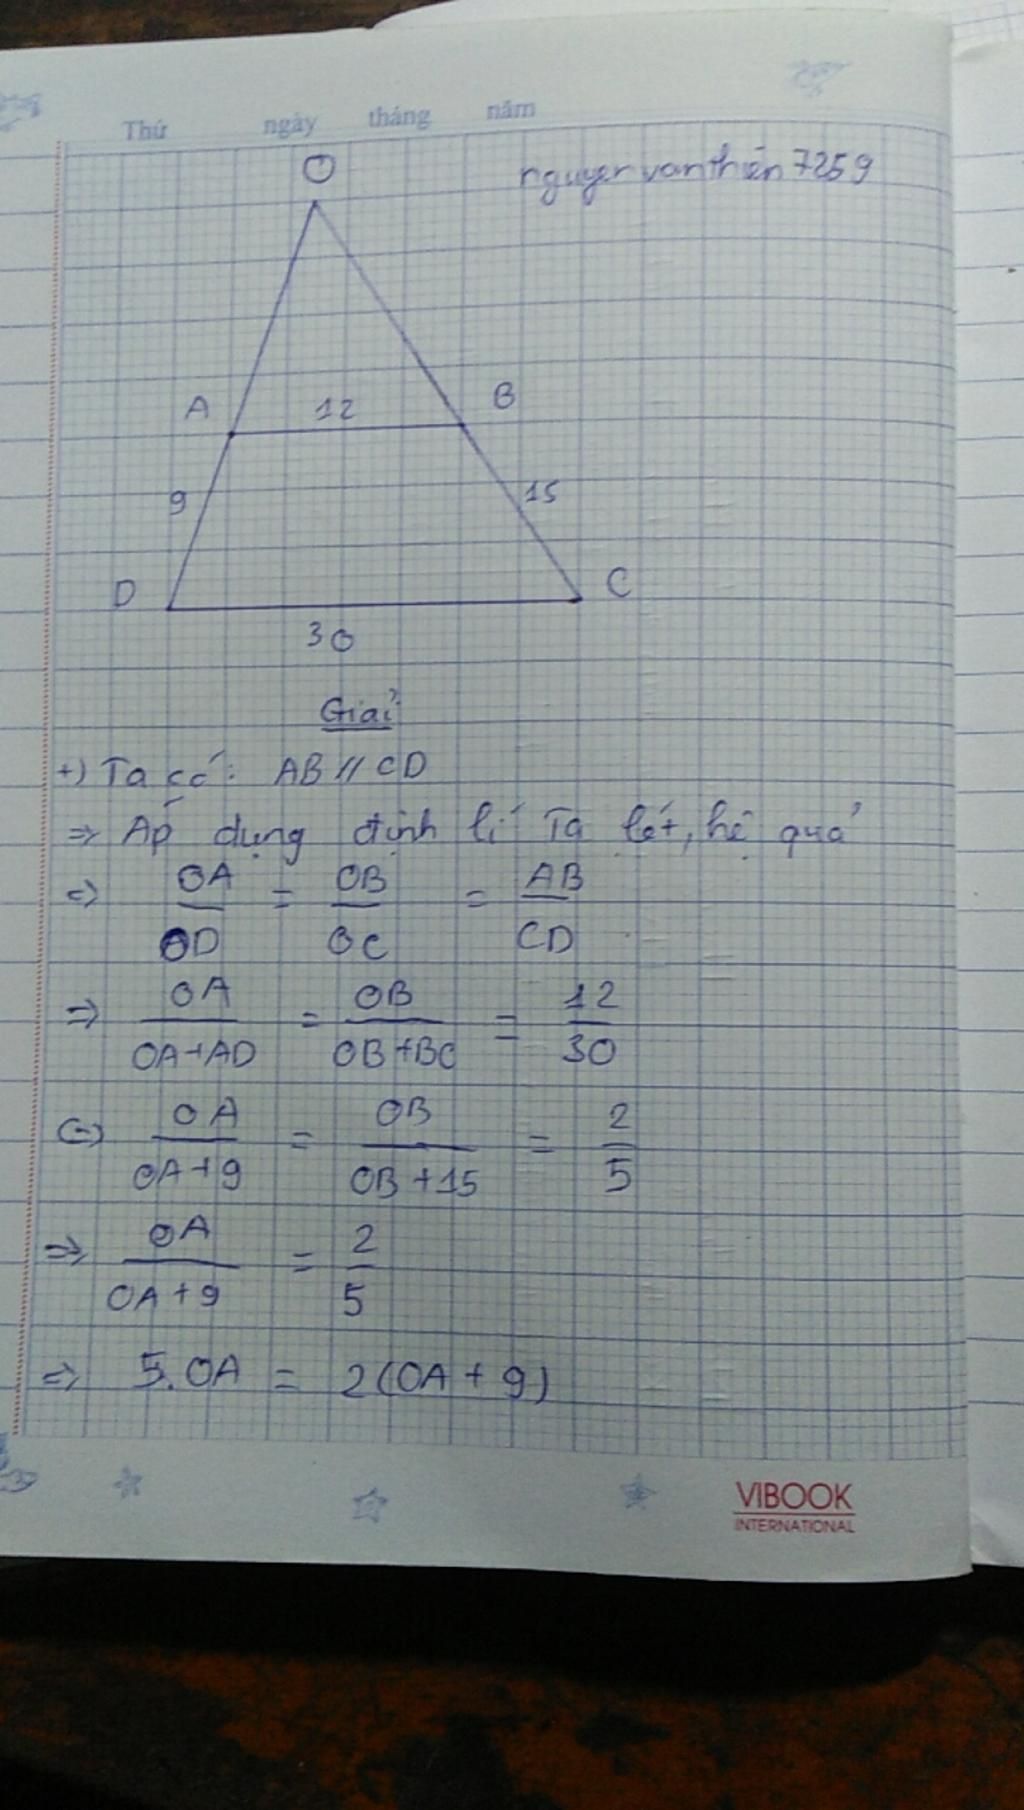 Thứ ngày tháng năm
O
nguyenvanthiên7259
A 12 B
9 15
D C
30
Giải
+) Ta có: AB // CD
=> Áp dụng định lí Ta lét, hệ quả
=> OA/OD = OB/OC = AB/CD
=> OA/OA+AD = OB/OB+BC = 12/30
<=> OA/OA+9 = OB/OB+15 = 2/5
=> OA/OA+9 = 2/5
=> 5.OA = 2(OA+9)
VIBOOK
INTERNATIONAL